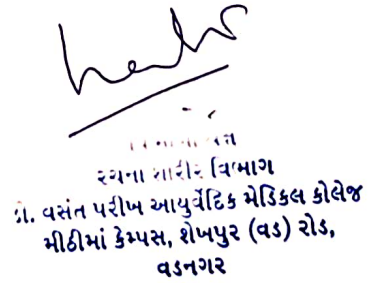 રચના શારીર વિભાગ
ડો. વસંત પરીખ આયુર્વેદિક મેડિકલ કોલેજ
મીઠીમાં કેમ્પસ, શેખપુર (વડ) રોડ,
વડનગર